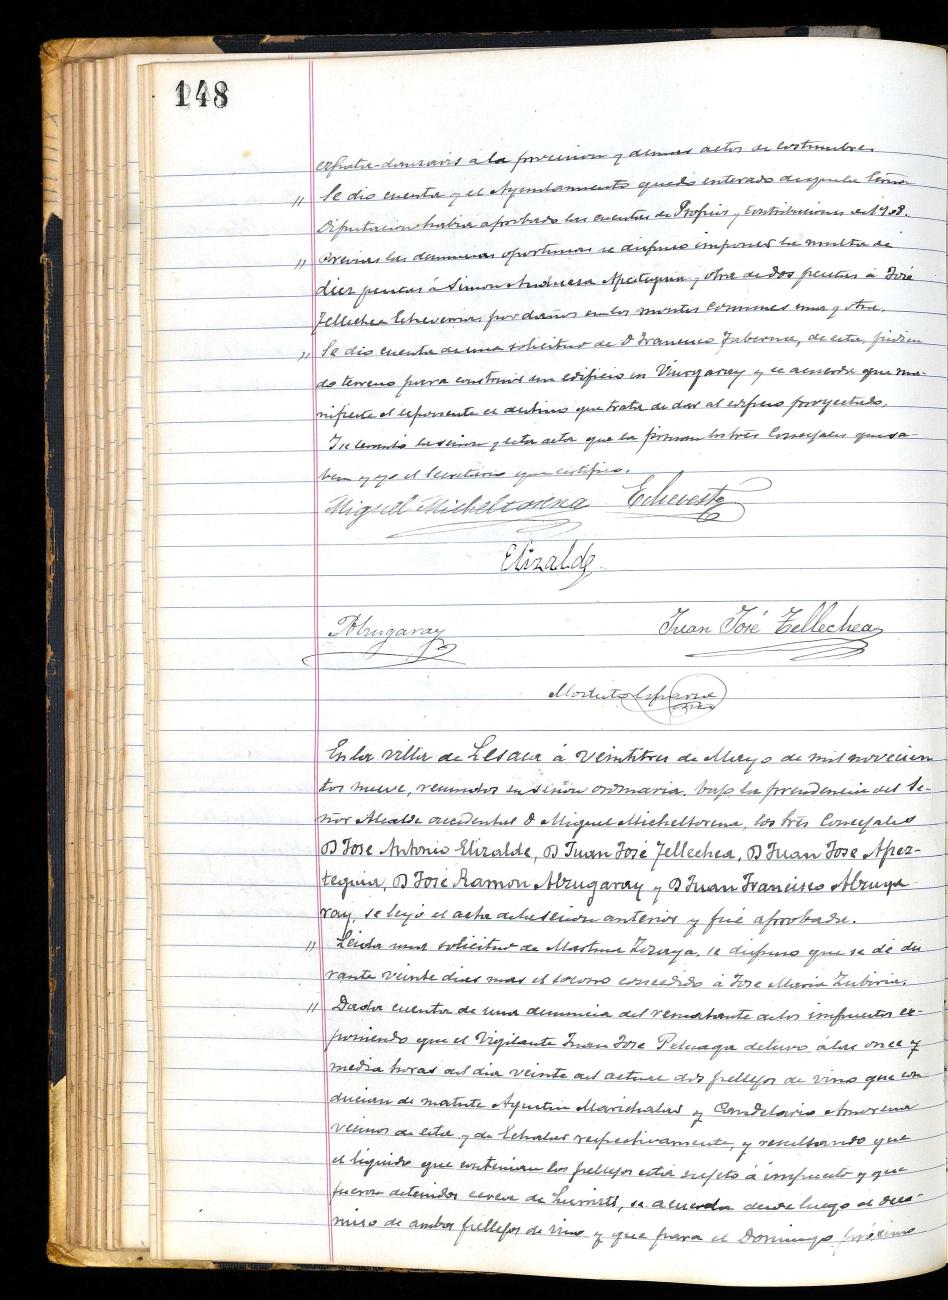 148
espata-danzaris a la procesion y demas actos de costumbre.
" Se dio cuenta y el Ayuntamiento quedó enterado de que la Exma
Diputacion habia aprobado las cuentas de Propios y Contribuciones del 1908.
" Previas las denuncias oportunas se dispuso imponer la multa de
diez pesetas á Simon Andueza Apezteguia y otra de dos pesetas á José
Tellechea Echeverria por daños en los montes comunes una y otra.
" Se dio cuenta de una solicitud de D Francisco Taberna, de esta, pidien
do terreno para construir un edificio en Vinrgaray y se acuerda que ma-
nifieste el exponente el destino que trata de dar al edificio proyectado.
Y se levantó la sesion y esta acta que la firman los tres Concejales que sa-
ben y yo el Secretario que certifico.
Miguel Micheltorena Echeveste
Elizalde
Abrugaray Juan José Tellechea
Modesto Esparza
En la villa de Lesaca á veintitres de Mayo de mil novecien
tos nueve, reunidos en sesion ordinaria bajo la presidencia del Se-
ñor Alcalde accidental D Miguel Micheltorena, los tres Concejales
D José Antonio Elizalde, D Juan José Tellechea, D Juan Jose Apez-
teguia, D José Ramon Abzugaray y D Juan Francisco Abzuga
ray, se leyó el acta de la sesion anterior y fué aprobada.
" Leida una solicitud de Martina se dispuso que se dé du
rante veinte dias mas el socorro concedido á Jose Maria Zubiria.
" Dada cuenta de una denuncia del rematante de los impuestos ex-
poniendo que el Vigilante Juan Jose Peluaga detuvo á las once y
media horas del dia veinte del actual dos pellejos de vino que con
ducian de matute Agustin Marichalar y Candelario Amorena
vecinos de esta y de Echalar respectivamente, y resultando que
el liquido que contenian los pellejos está sujeto á impuesto y que
fueron detenidos cerca de se acuerda desde luego el deco-
miso de ambos pellejos de vino y que para el Domingo próximo